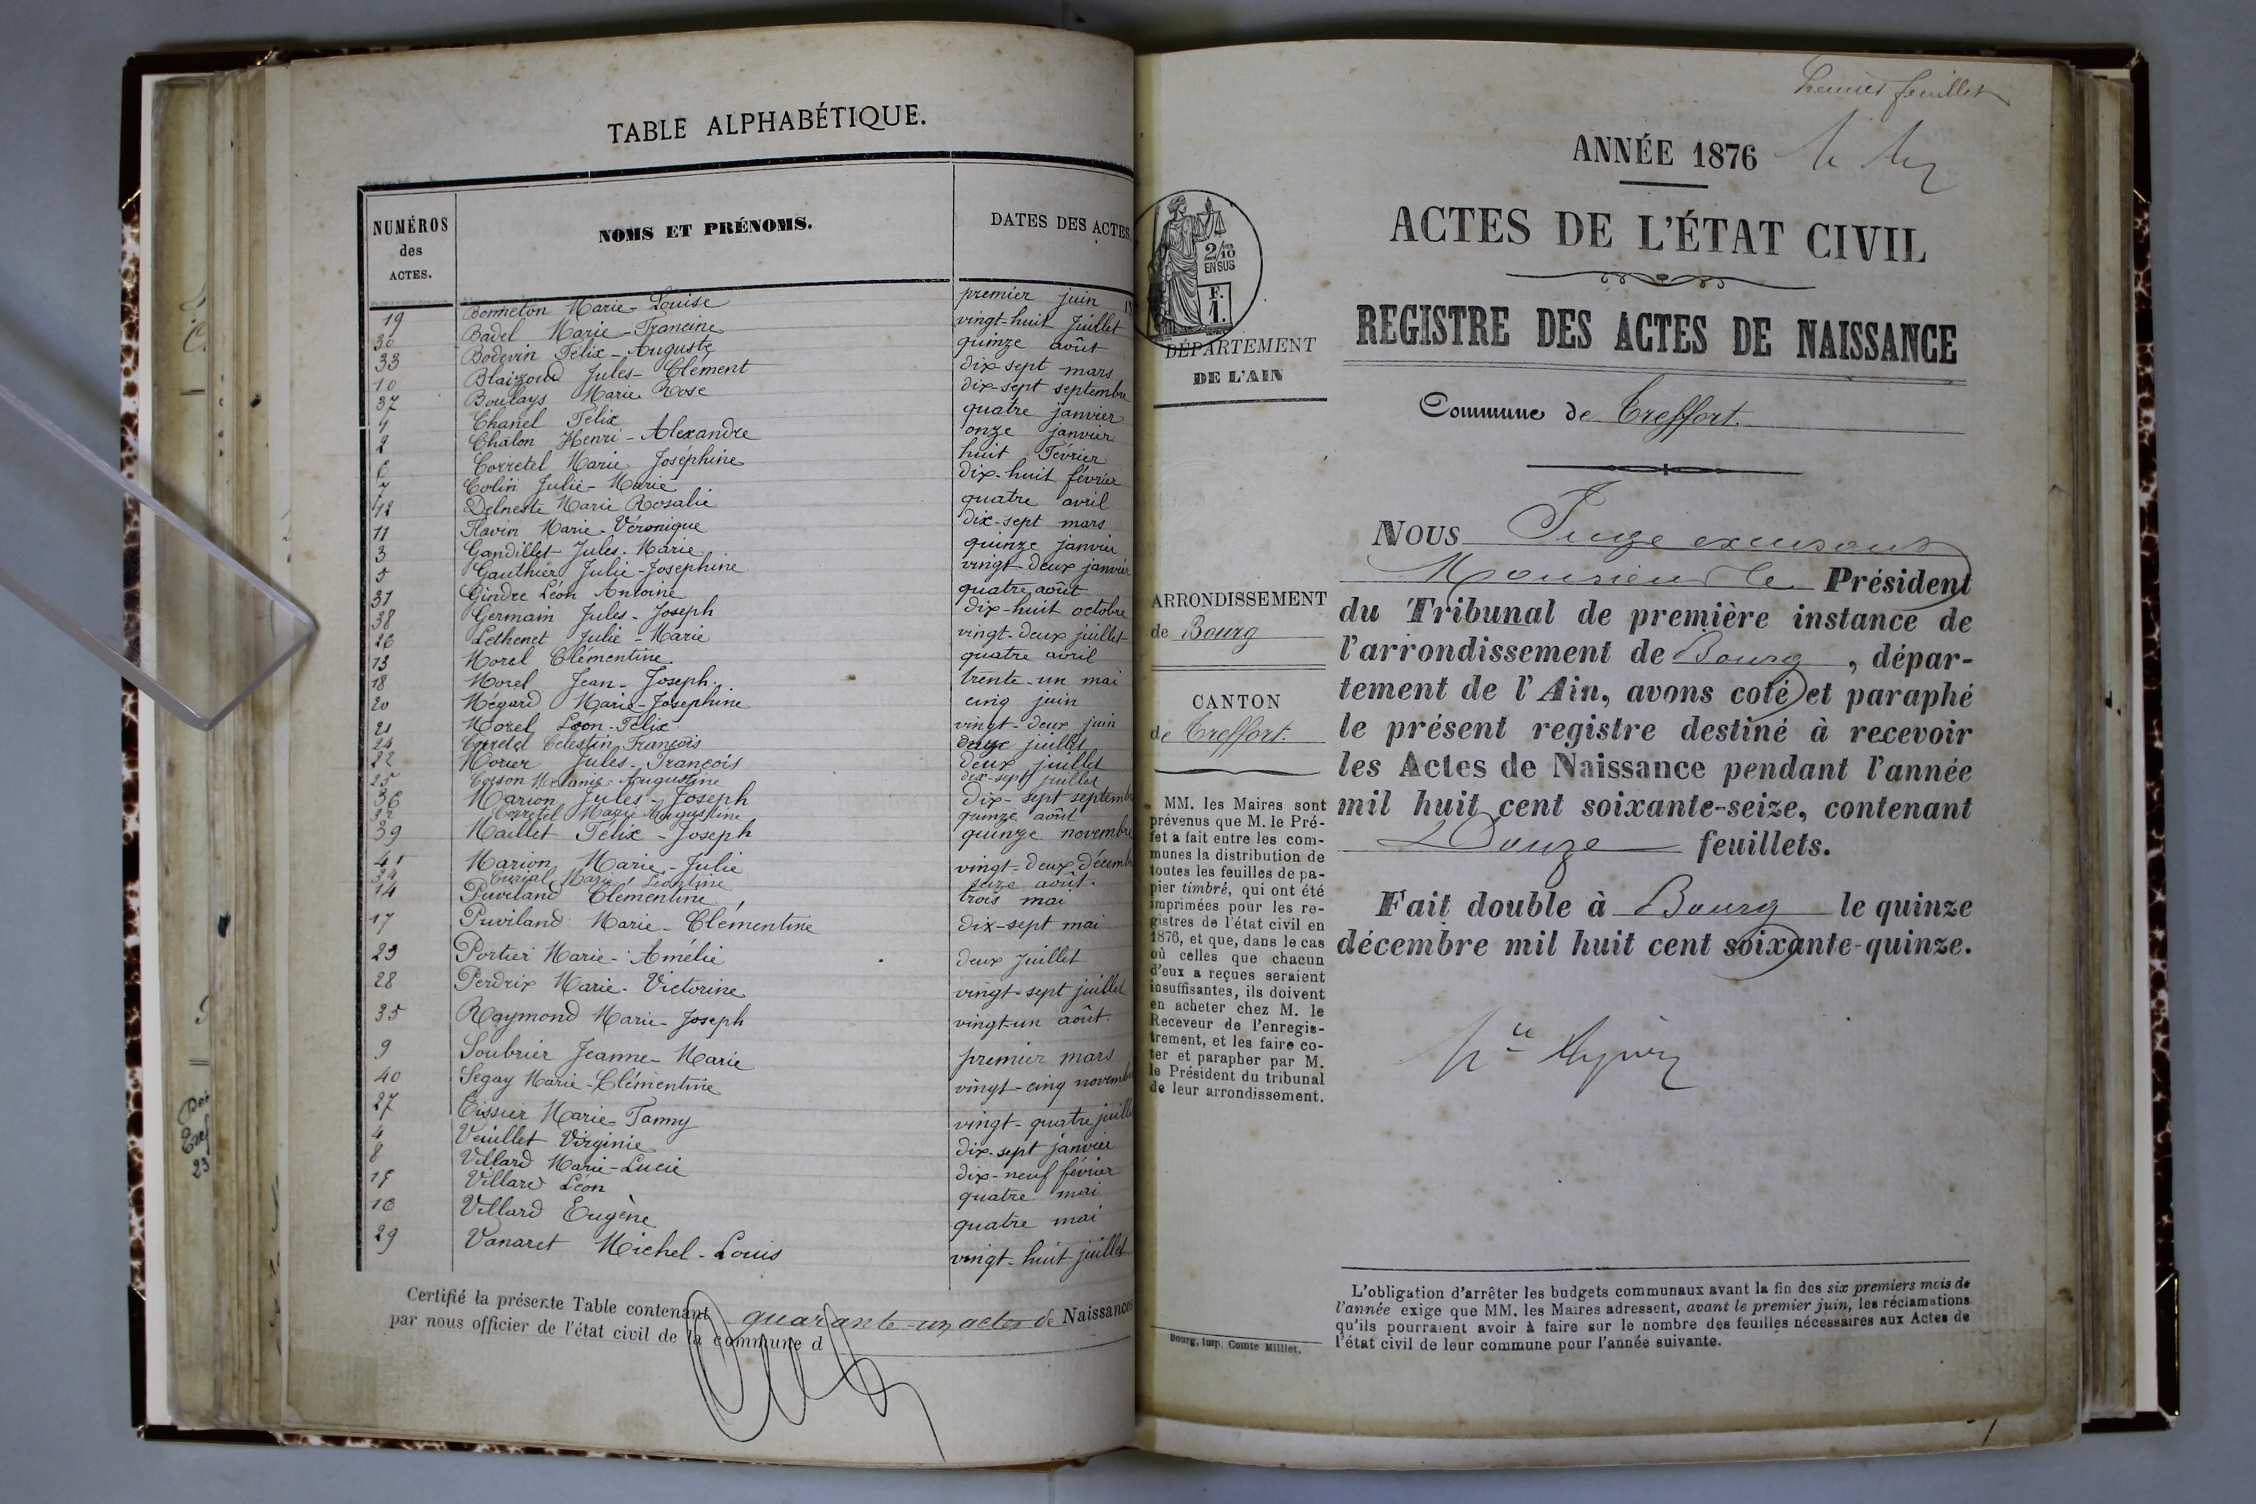 TABLE ALPHABÉTIQUE.
NUMÉROS des ACTES.
NOMS ET PRÉNOMS.
DATES DES ACTES.
19 Bonneton Marie-Louise premier juin
30 Badel Marie-Francine vingt-huit Juillet
33 Bodevin Félix-Auguste quinze août
10 Jules-Clément dix-sept mars
37 Boulays Marie Rose dix-sept septembre
Chanel Félix quatre janvier
2 Chalon Henri-Alexandre onze janvier
6 Corretel Marie Joséphine huit Février
7 Colin Julie-Marie dix-huit février
12 Delneste Marie Rosalie quatre avril
11 Flavin Marie-Véronique dix-sept mars
3 Gandillet Jules-Marie quinze janvier
5 Gauthier Julie-Josephine vingt-deux janvier
31 Gindre Léon Antoine quatre août
38 Germain Jules-Joseph dix-huit octobre
26 Lethenet Julie-Marie vingt-deux juillet
13 Morel Clémentine quatre avril
18 Morel Jean-Joseph. trente-un mai
20 Mégard Marie-Josephine cinq juin
21 Morel Léon-Félix vingt-deux juin
24 Corretel Celestin François deux juillet
22 Morier Jules-François deux juillet
25 Corson Mélanie-Augustine dix-sept juillet
36 Marion Jules-Joseph dix-sept septembre
32 Corretel Marie Augustine quinze août
39 Maillet Félix-Joseph quinze novembre
41 Marion Marie-Julie vingt-deux décembre
34 Curial Marie Léontine seize août.
14 Puviland Clémentine trois mai
17 Puviland Marie-Clémentine dix-sept mai
23 Portier Marie-Amélie deux juillet
28 Perdrix Marie-Victorine vingt-sept juillet
35 Raymond Marie-Joseph vingt-un août
9 Soubrier Jeanne-Marie premier mars
40 Segay Marie-Clémentine vingt-cinq novembre
27 Tissier Marie-Fanny vingt-quatre juillet
4 Veuillet Virginie dix-sept janvier
8 Villard Marie-Lucie dix-neuf février
15 Villard Léon quatre mai
16 Villard Eugène quatre mai
29 Vanaret Michel-Louis vingt-huit juillet
Certifié la présente Table contenant quarante-un actes de Naissances
par nous officier de l'état civil de la commune d
Premier feuillet
ANNÉE 1876
ACTES DE L'ÉTAT CIVIL
REGISTRE DES ACTES DE NAISSANCE
Commune de Treffort.
2/10
EN SUS
F.
1.
DÉPARTEMENT
DE L'AIN
ARRONDISSEMENT
de Bourg
CANTON
de Treffort.
MM. les Maires sont
prévenus que M. le Pré-
fet a fait entre les com-
munes la distribution de
toutes les feuilles de pa-
pier timbré, qui ont été
imprimées pour les re-
gistres de l'état civil en
1876, et que, dans le cas
où celles que chacun
d'eux a reçues seraient
insuffisantes, ils doivent
en acheter chez M. le
Receveur de l'enregis-
trement, et les faire co-
ter et parapher par M.
le Président du tribunal
de leur arrondissement.
Bourg, imp. Comte Milliet.
NOUS Juge
Monsieur le Président
du Tribunal de première instance de
l'arrondissement de Bourg, dépar-
tement de l'Ain, avons coté et paraphé
le présent registre destiné à recevoir
les Actes de Naissance pendant l'année
mil huit cent soixante-seize, contenant
Douze feuillets.
Fait double à Bourg le quinze
décembre mil huit cent soixante-quinze.
L'obligation d'arrêter les budgets communaux avant la fin des six premiers mois de
l'année exige que MM. les Maires adressent, avant le premier juin, les réclamations
qu'ils pourraient avoir à faire sur le nombre des feuilles nécessaires aux Actes de
l'état civil de leur commune pour l'année suivante.